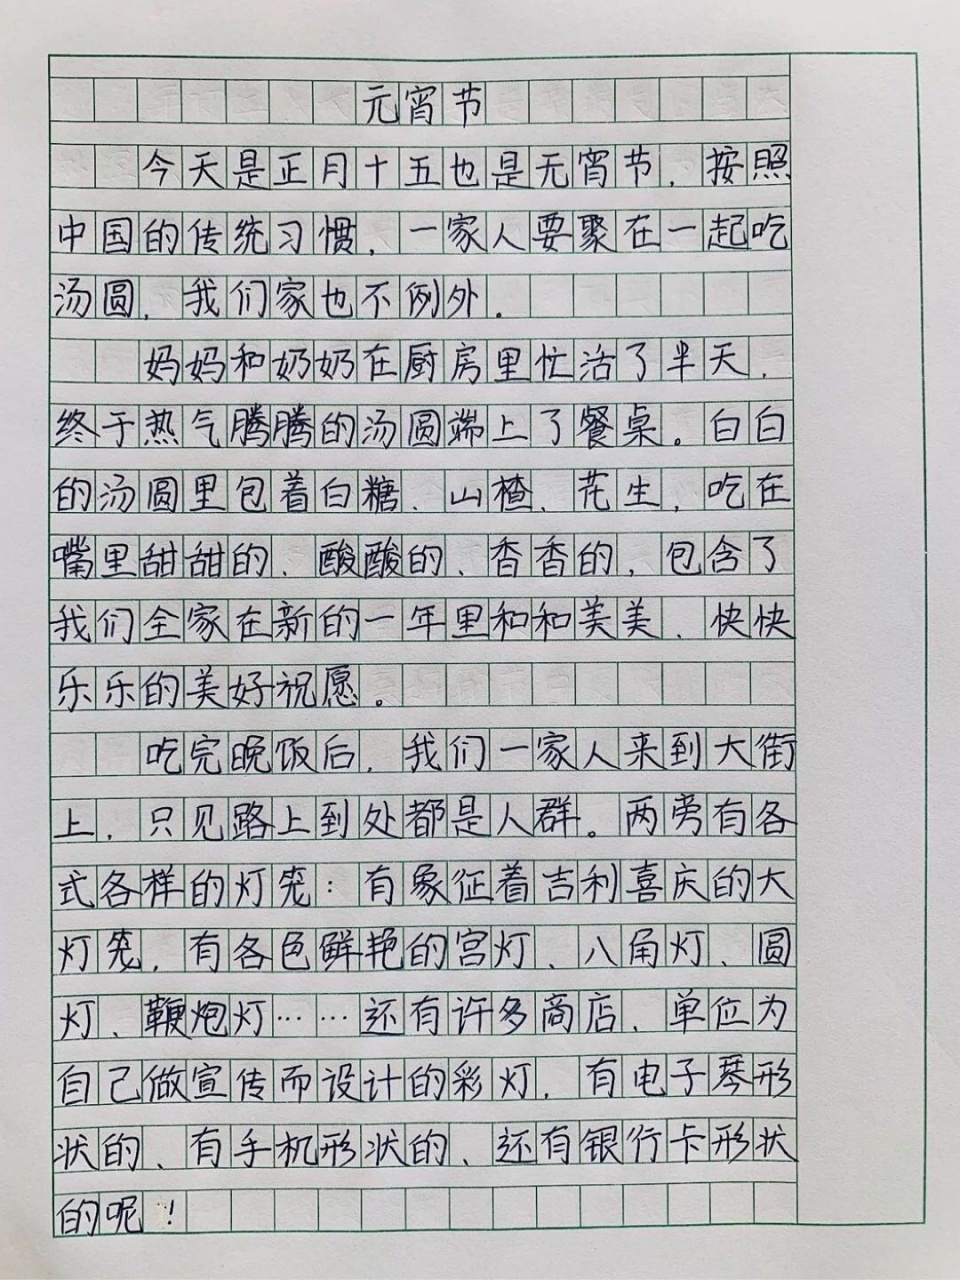 元宵节
今天是正月十五也是元宵节，按照
中国的传统习惯，一家人要聚在一起吃
汤圆，我们家也不例外．
妈妈和奶奶在厨房里忙活了半天，
终于热气腾腾的汤圆端上了餐桌。白白
的汤圆里包着白糖、山楂、花生，吃在
嘴里甜甜的、酸酸的、香香的，包含了
我们全家在新的一年里和和美美、快快
乐乐的美好祝愿。
吃完晚饭后，我们一家人来到大街
上，只见路上到处都是人群。两旁有各
式各样的灯笼：有象征着吉利喜庆的大
灯笼，有各色鲜艳的宫灯、八角灯、圆
灯、鞭炮灯……还有许多商店、单位为
自己做宣传而设计的彩灯，有电子琴形
状的、有手机形状的、还有银行卡形状
的呢！